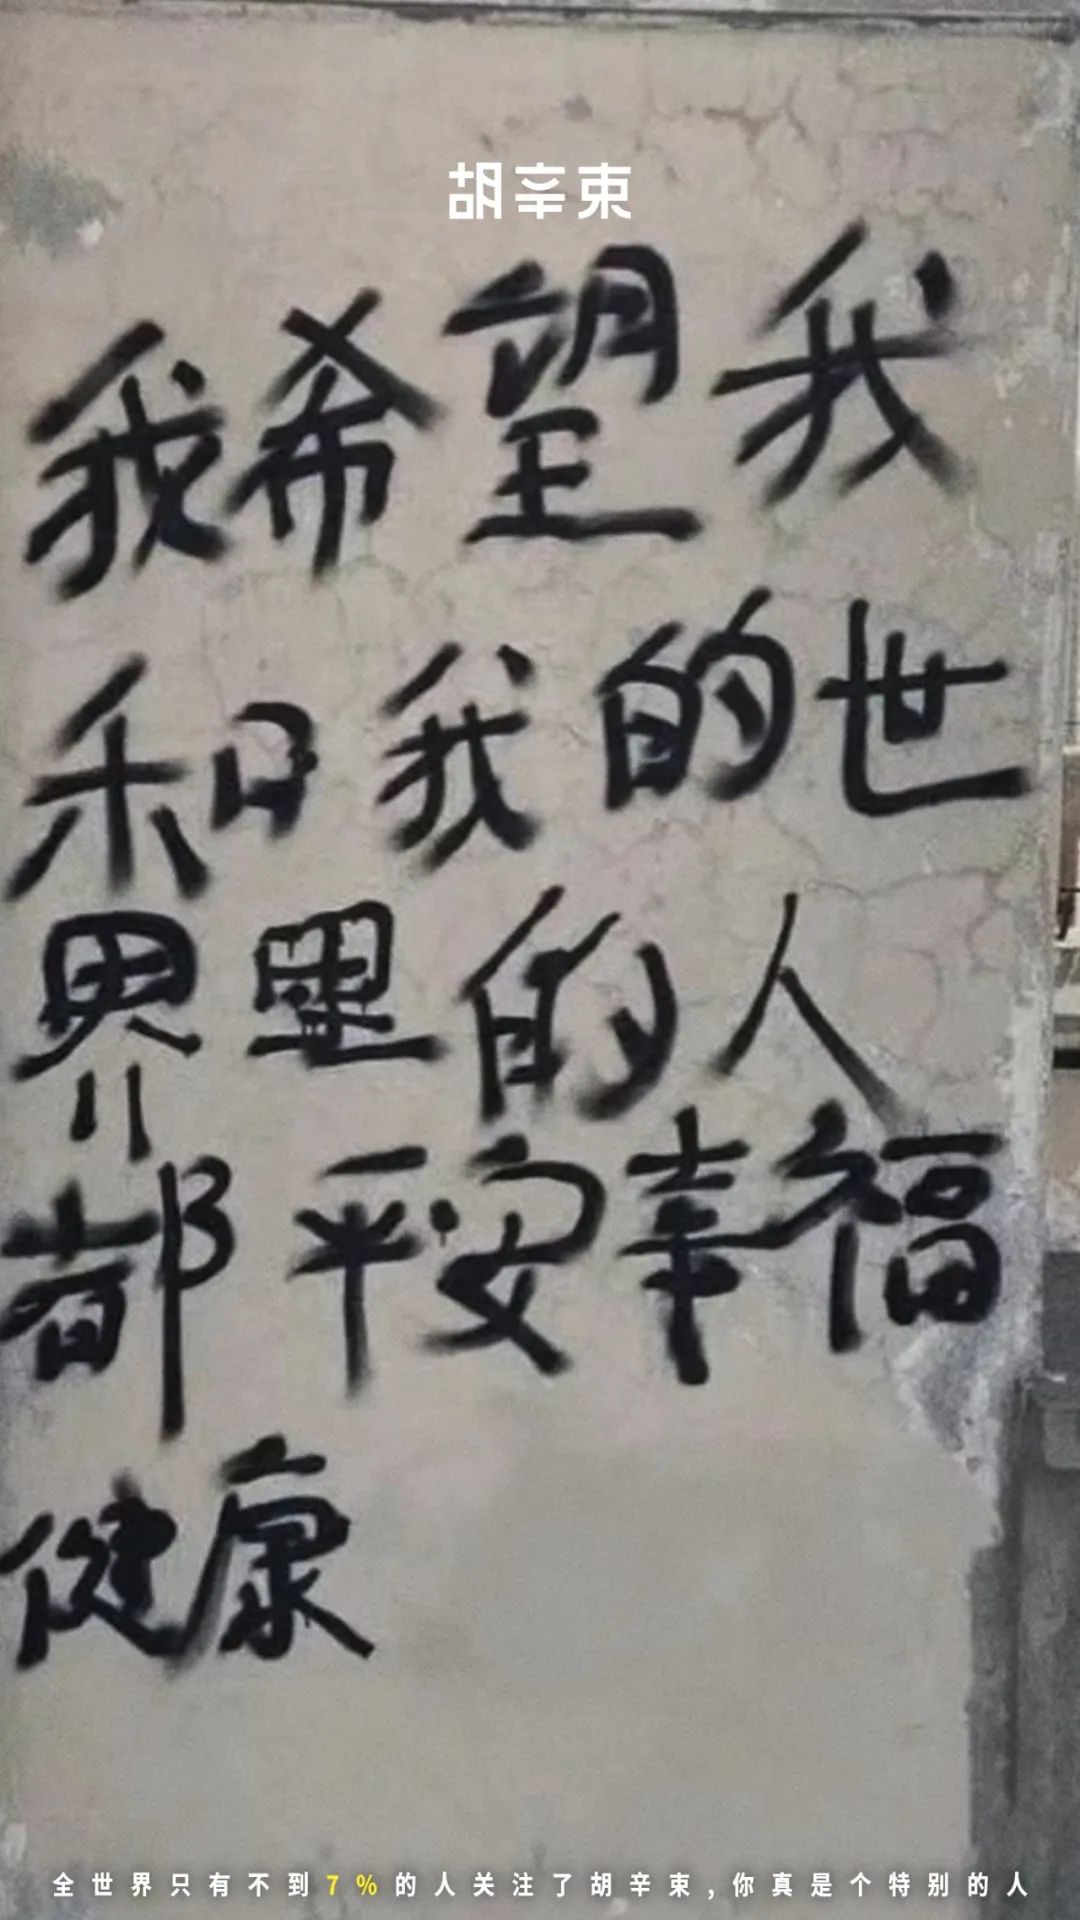 胡辛束
我希望我
和我的世
界里的人
都平安幸福
健康
全世界只有不到7%的人关注了胡辛束,你真是个特别的人